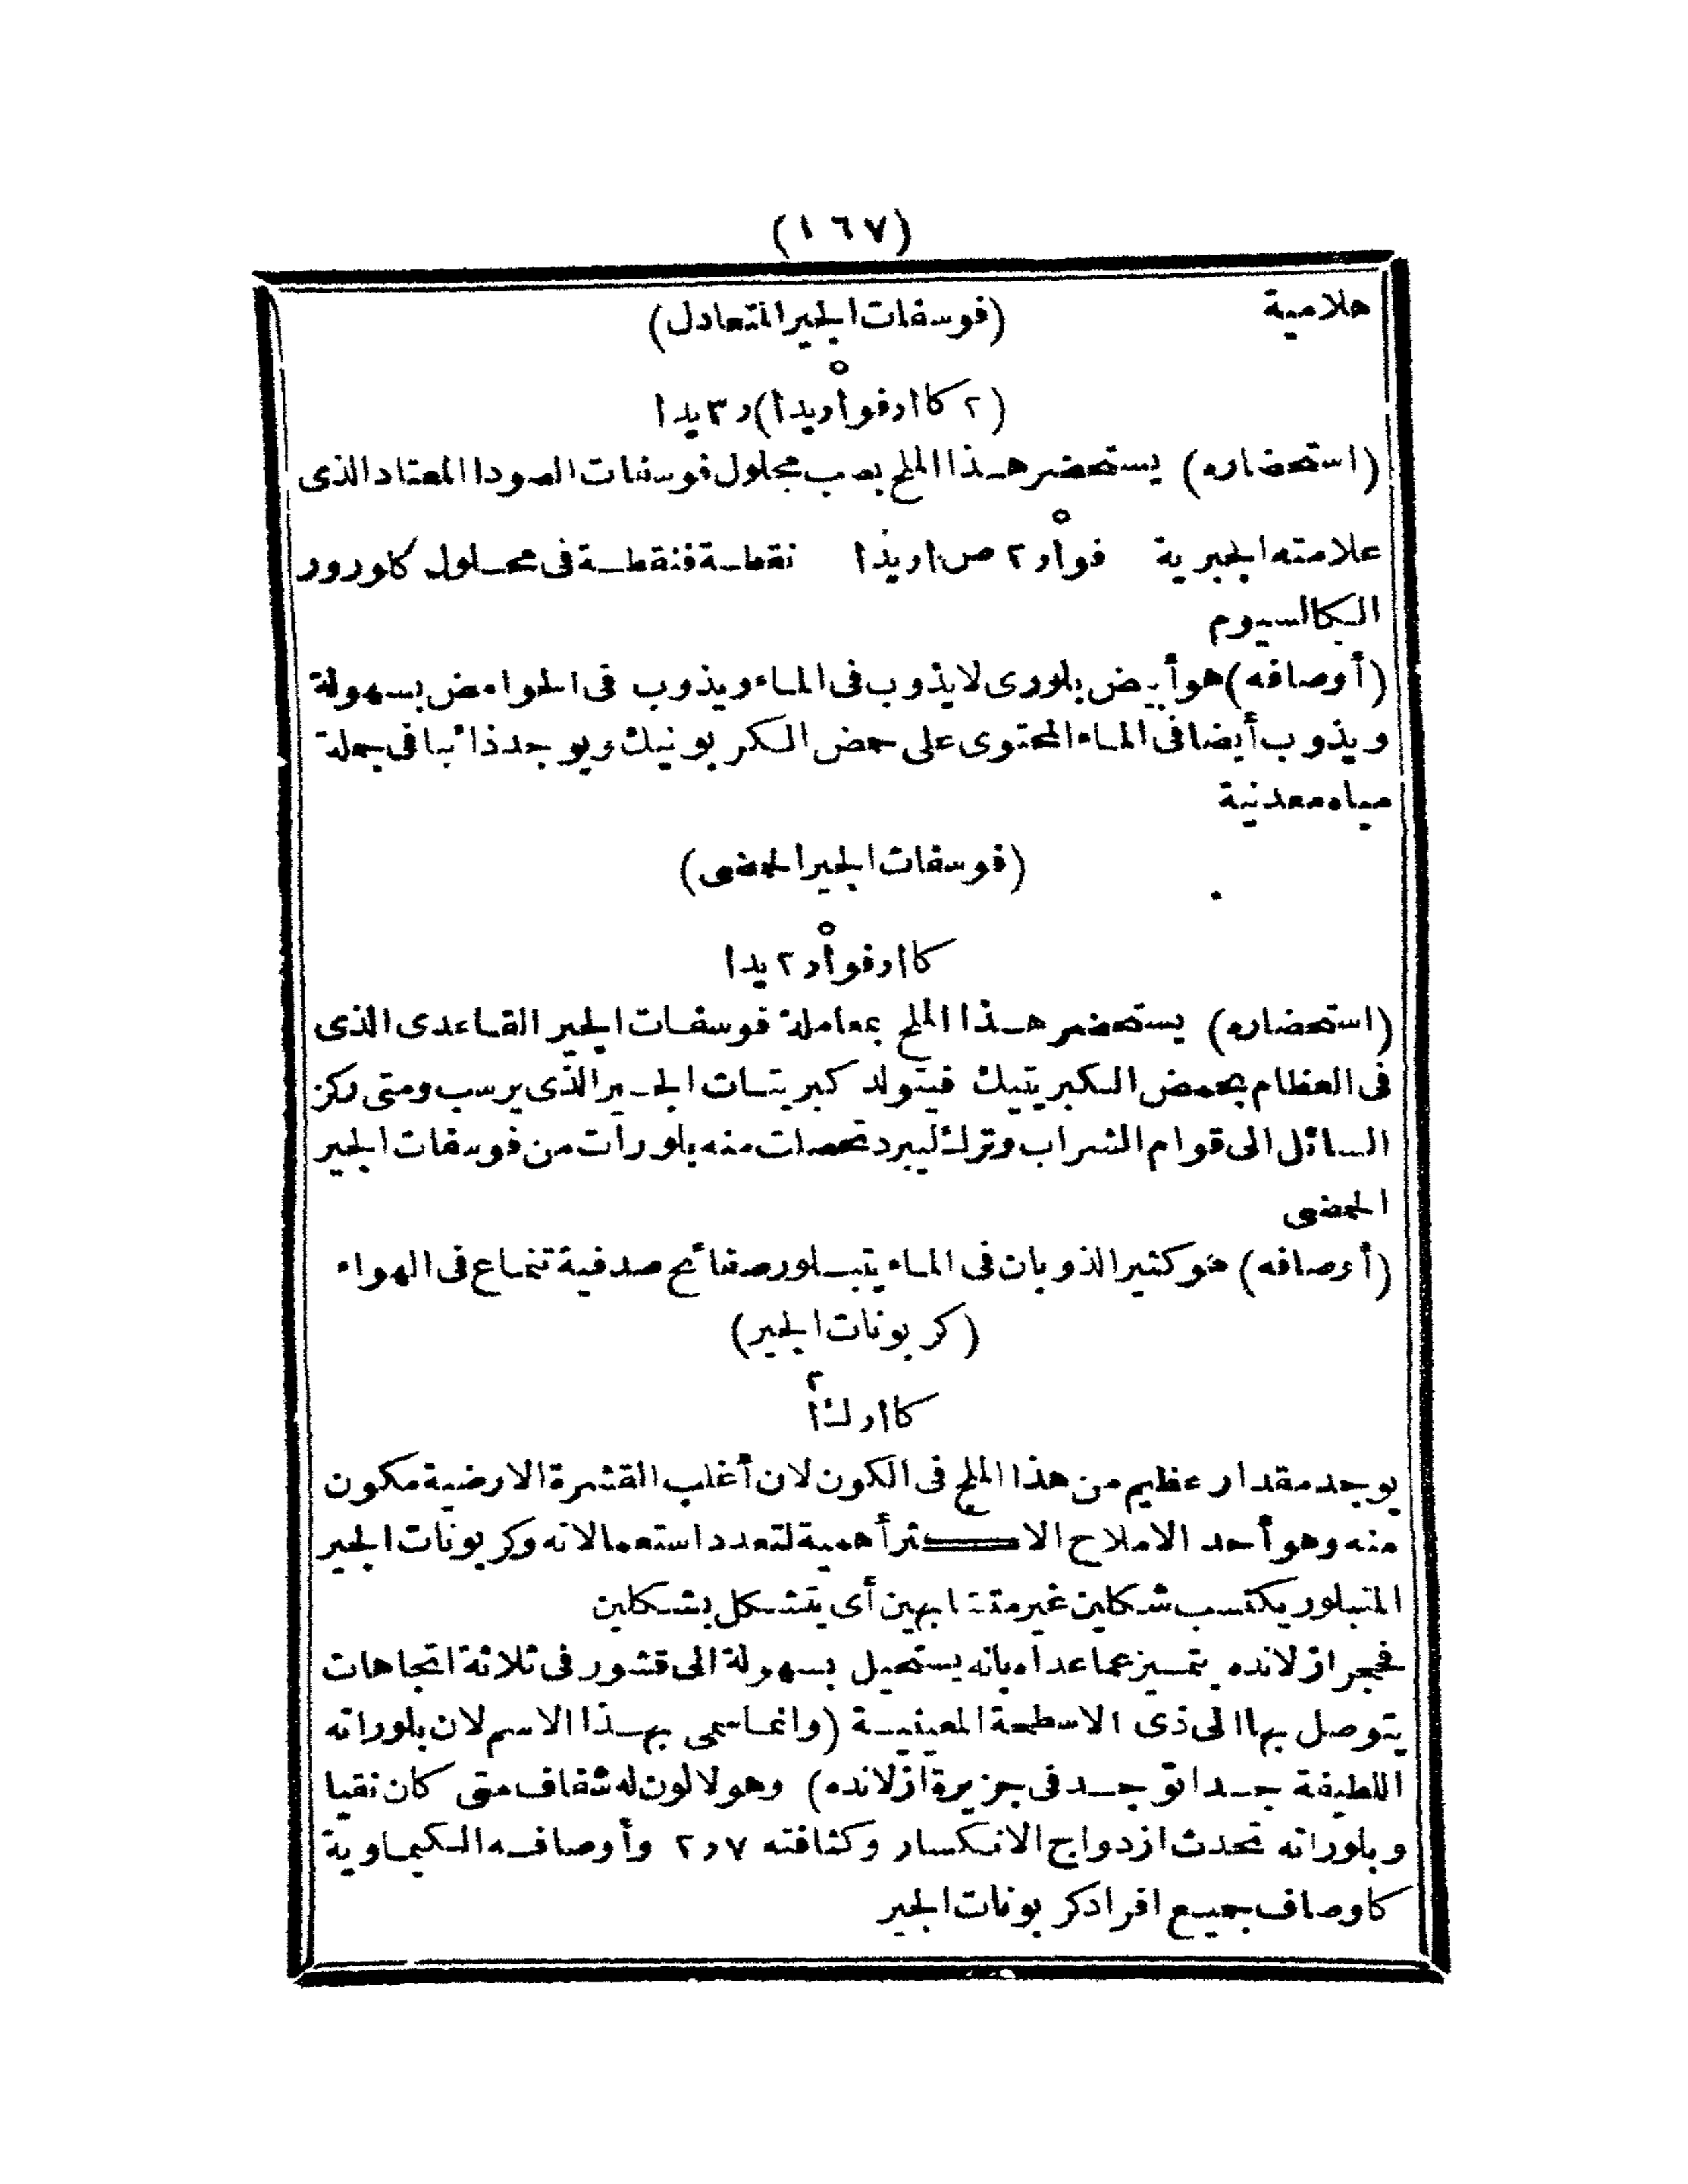 (١٦٧)
هلامية (فوسفات الجير المتعادل)
(٢ كاا رفواْ ريدا) ر ٣ يدا
(استحضاره) يستحضر هذا الملح بصب محلول فوسفات الصودا المعتاد الذى
علامته الجبرية فواْ ر ٢ ص ا ر يدا نقطة فنقطة فى محلول كلورور
الكالسيوم
(أوصافه) هو أبيض بلورى لا يذوب فى الماء ويذوب فى الحوامض بسهولة
ويذوب أيضا فى الماء المحتوى على حمض الكربونيك ويوجد ذائبا فى جملة
مياه معدنية
(فوسفات الجير الحمضى)
كاا رفواْ ر ٢ يدا
(استحضاره) يستحضر هذا الملح بمعاملة فوسفات الجير القاعدى الذى
فى العظام بحمض الكبريتيك فيتولد كبريتات الجير الذى يرسب ومتى ركز
السائل الى قوام الشراب وترك ليبرد تحصلت منه بلورات من فوسفات الجير
الحمضى
(أوصافه) هو كثير الذوبان فى الماء يتبلور صفائح صدفية تنماع فى الهواء
(كربونات الجير)
كاا ر ك ا٢
يوجد مقدار عظيم من هذا الملح فى الكون لان أغلب القشرة الارضية مكون
منه وهو أحد الاملاح الاكثر أهمية لتعدد استعمالاته وكربونات الجير
المتبلور يكتسب شكلين غير متشابهين أى يتشكل بشكلين
فحجر ازلانده يتميز عما عداه بانه يستحيل بسهولة الى قشور فى ثلاثة اتجاهات
يتوصل بها الى ذى الاسطحة المعينية (وانما سمى بهذا الاسم لان بلوراته
اللطيفة جدا توجد فى جزيرة ازلانده) وهو لا لون له شفاف متى كان نقيا
وبلوراته تحدث ازدواج الانكسار وكثافته ٧ر٢ وأوصافه الكيماوية
كاوصاف جميع افراد كربونات الجير